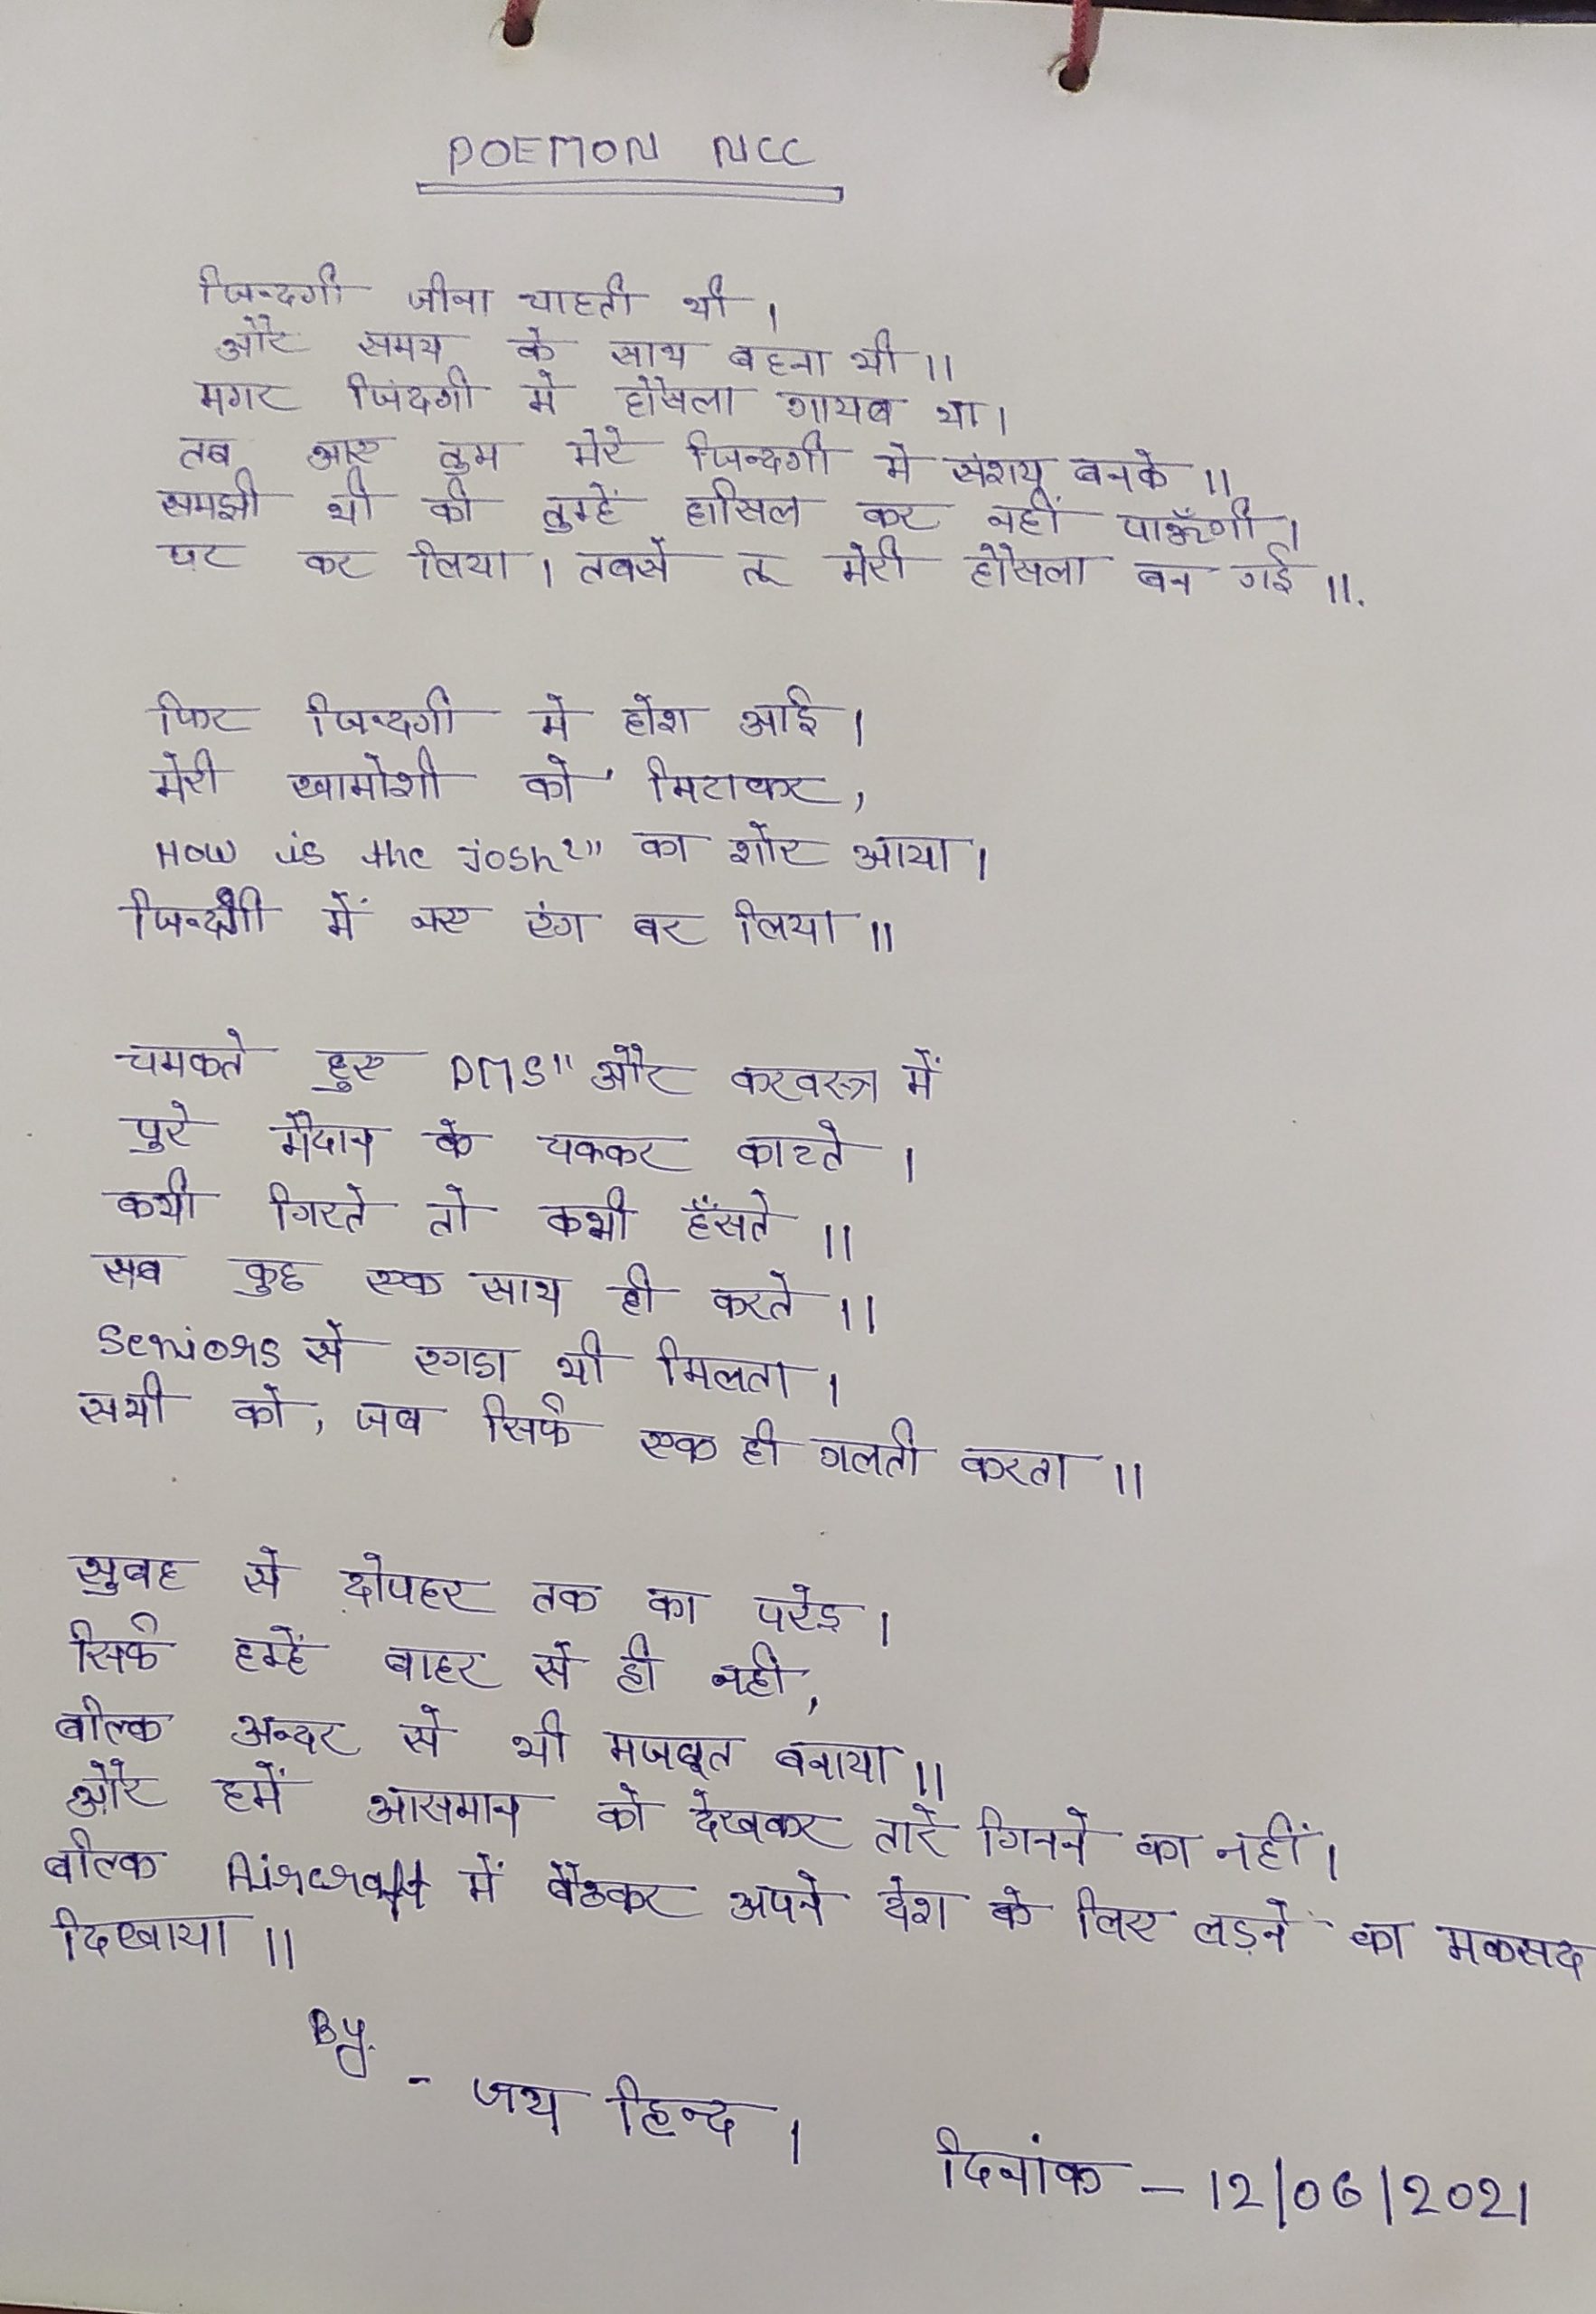 POEMON NCC
जिन्दगी जीना चाहती थी ।
और समय के साथ बहना भी ।।
मगर जिंदगी मे हौसला गायब था ।
तब आए तुम मेरे जिन्दगी मे संशय बनके ।।
समझी थी की तुम्हें हासिल कर नहीं पाऊँगी ।
पर कर लिया । तबसे तू मेरी हौसला बन गई ।।.
फिर जिन्दगी मे होश आई ।
मेरी खामोशी को मिटाकर,
HOW is the josh?" का शोर आया ।
जिन्दगी में नए रंग बर लिया ।।
चमकते हुए DMS" और करवस्त्र में
पुरे मैदान के चक्कर काटते ।
कभी गिरते तो कभी हँसते ।।
सब कुछ एक साथ ही करते ।।
Seniors से रगडा भी मिलता ।
सभी को, जब सिर्फ एक ही गलती करता ।।
सुबह से दोपहर तक का परेड ।
सिर्फ हम्हें बाहर से ही नही,
बल्कि अन्दर से भी मजबूत बनाया ।।
और हमें आसमान को देखकर तारे गिनने का नहीं ।
बल्कि Aircraft में बैठकर अपने देश के लिए लड़ने का मकसद
दिखाया ।।
By.
- जय हिन्द ।
दिनांक - 12/06/2021